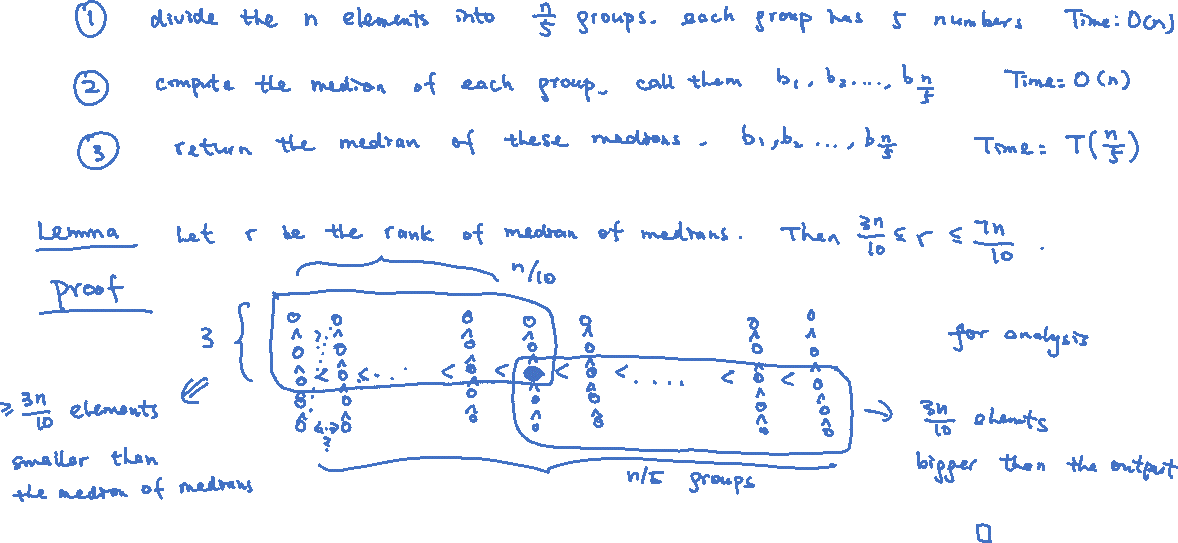 ① divide the n elements into n/5 groups. each group has 5 numbers Time: O(n)
② compute the median of each group. call them b₁, b₂ ...., b n/5 Time: O(n)
③ return the median of these medians. b₁, b₂ ..., b n/5 Time: T(n/5)
Lemma Let r be the rank of median of medians. Then 3n/10 ≤ r ≤ 7n/10.
Proof
n/10
3
for analysis
≥ 3n/10 elements
smaller than
the median of medians
3n/10 elements
bigger than the output
n/5 groups
□